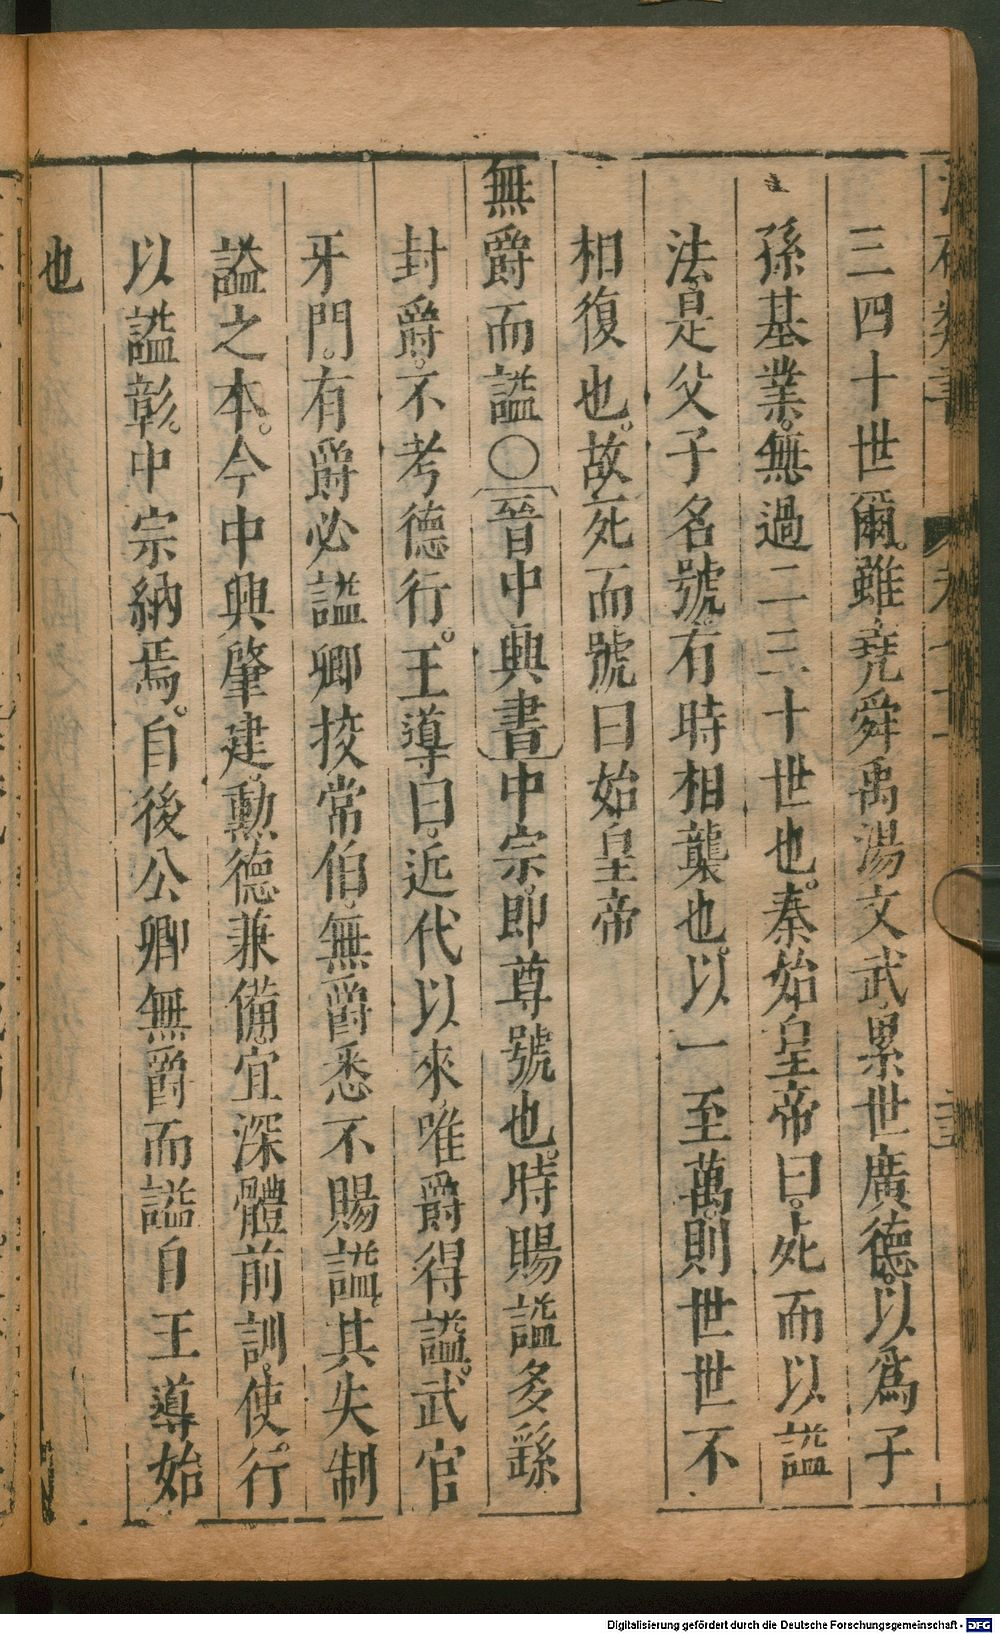 三四十世爾。雖堯舜禹湯文武累世廣德。以爲子
孫基業。無過二三十世也。秦始皇帝曰。死而以謚
法。是父子名號。有時相襲也。以一至萬。則世世不
相復也。故死而號曰始皇帝
無爵而謚〇晉中興書中宗即尊號也。時賜謚多繇
封爵。不考德行。王導曰。近代以來。唯爵得謚。武官
牙門。有爵必謚。卿挍常伯。無爵悉不賜謚。其失制
謚之本。今中興肇建。勳德兼備。宜深體前訓。使。行
以謚彰。中宗納焉。自後公卿無爵而謚自王導始
也
Digitalisierung gefördert durch die Deutsche Forschungsgemeinschaft - DFG